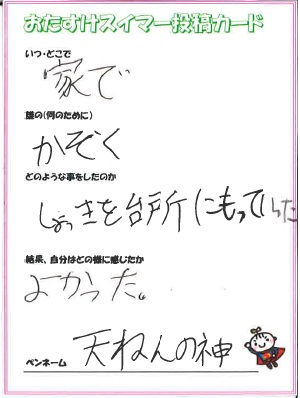 おたすけスイマー投稿カード
いつ・どこで
家で
誰の(何のために)
かぞく
どのような事をしたのか
しょっきを台所にもっていった
結果、自分はどの様に感じたか
よかった。
ペンネーム 天ねんの神